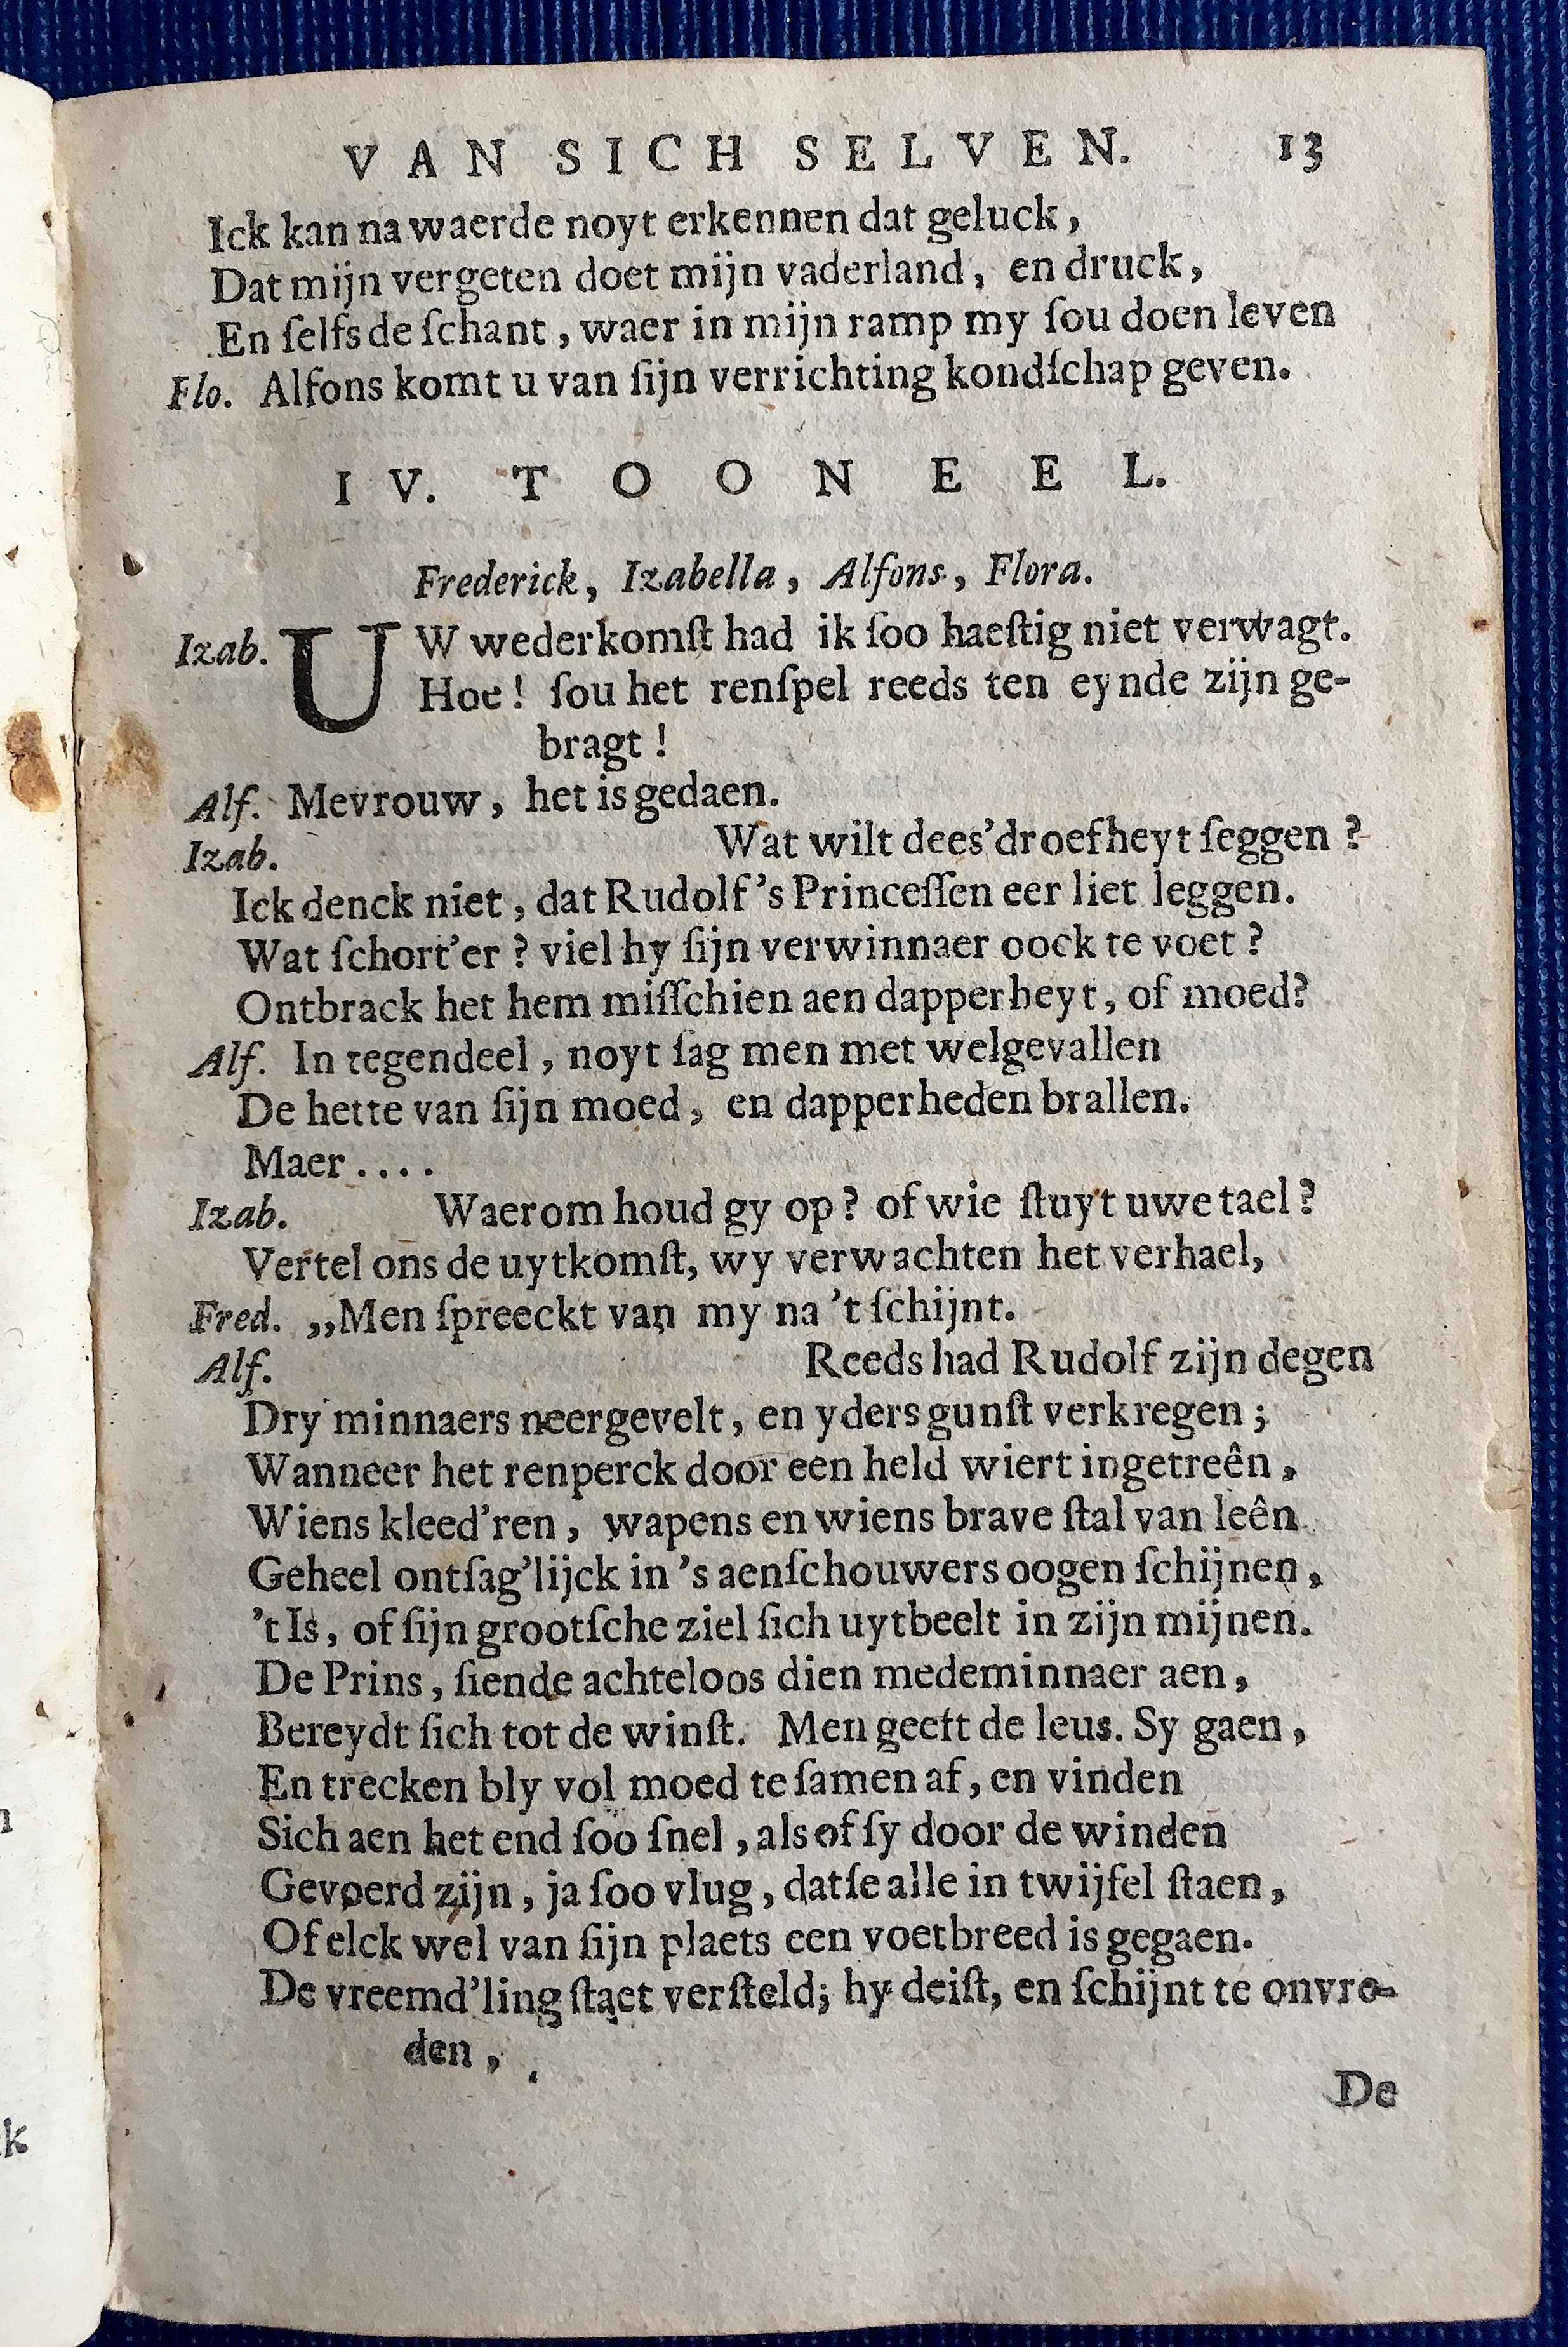 VAN SICH SELVEN. 13
Ick kan na waerde noyt erkennen dat geluck,
Dat mijn vergeten doet mijn vaderland, en druck,
En ſelfs de ſchant, waer in mijn ramp my ſou doen leven
Flo. Alfons komt u van ſijn verrichting kondſchap geven.
IV. TOONEEL.
Frederick, Izabella, Alfons, Flora.
Izab. UW wederkomſt had ik ſoo haeſtig niet verwagt.
Hoe! ſou het renſpel reeds ten eynde zijn ge-
bragt!
Alf. Mevrouw, het is gedaen.
Izab. Wat wilt dees' droefheyt ſeggen?
Ick denck niet, dat Rudolf 's Princeſſen eer liet leggen.
Wat ſchort'er? viel hy ſijn verwinnaer oock te voet?
Ontbrack het hem miſſchien aen dapperheyt, of moed?
Alf. In tegendeel, noyt ſag men met welgevallen
De hette van ſijn moed, en dapperheden brallen.
Maer....
Izab. Waerom houd gy op? of wie ſtuyt uwe tael?
Vertel ons de uytkomſt, wy verwachten het verhael,
Fred. „Men ſpreeckt van my na 't ſchijnt.
Alf. Reeds had Rudolf zijn degen
Dry minnaers neergevelt, en yders gunſt verkregen;
Wanneer het renperck door een held wiert ingetreên,
Wiens kleed'ren, wapens en wiens brave ſtal van leên
Geheel ontſag'lijck in 's aenſchouwers oogen ſchijnen,
't Is, of ſijn grootſche ziel ſich uytbeelt in zijn mijnen.
De Prins, ſiende achteloos dien medeminnaer aen,
Bereydt ſich tot de winſt. Men geeft de leus. Sy gaen,
En trecken bly vol moed te ſamen af, en vinden
Sich aen het end ſoo ſnel, als of ſy door de winden
Gevoerd zijn, ja ſoo vlug, datſe alle in twijfel ſtaen,
Of elck wel van ſijn plaets een voetbreed is gegaen.
De vreemd'ling ſtaet verſteld; hy deiſt, en ſchijnt te onvre-
den,
De